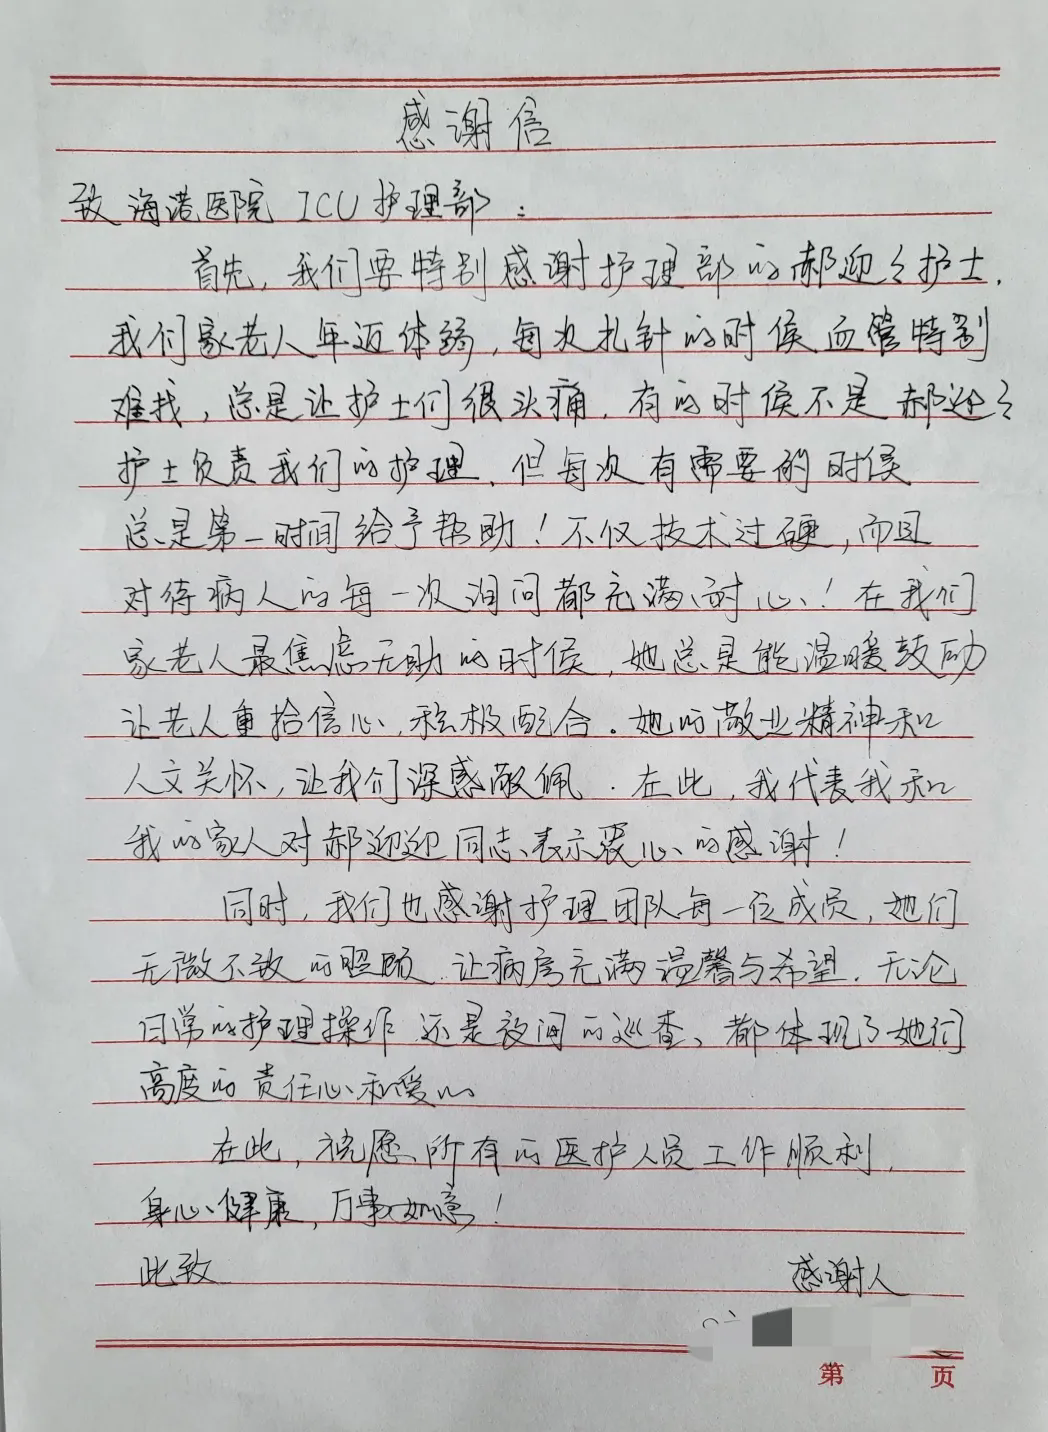 感谢信
致海港医院ICU护理部：
首先，我们要特别感谢护理部的郝迎々护士，
我们家老人年迈体弱，每次扎针的时候血管特别
难找，总是让护士们很头痛，有的时候不是郝迎々
护士负责我们的护理，但每次有需要的时候
总是第一时间给予帮助！不仅技术过硬，而且
对待病人的每一次询问都充满耐心！在我们
家老人最焦虑无助的时候，她总是能温暖鼓励
让老人重拾信心，积极配合。她的敬业精神和
人文关怀，让我们深感敬佩．在此，我代表我和
我的家人对郝迎迎同志表示衷心的感谢！
同时，我们也感谢护理团队每一位成员，她们
无微不致的照顾，让病房充满温馨与希望．无论
日常的护理操作，还是夜间的巡查、都体现了她们
高度的责任心和爱心
在此，祝愿所有的医护人员工作顺利，
身心健康，万事如意！
此致 感谢人
第 页